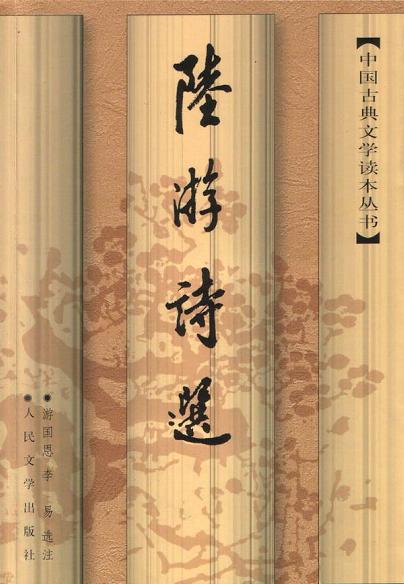 【中国古典文学读本丛书】
陸游詩選
●游国恩 李易 选注
●人民文学出版社